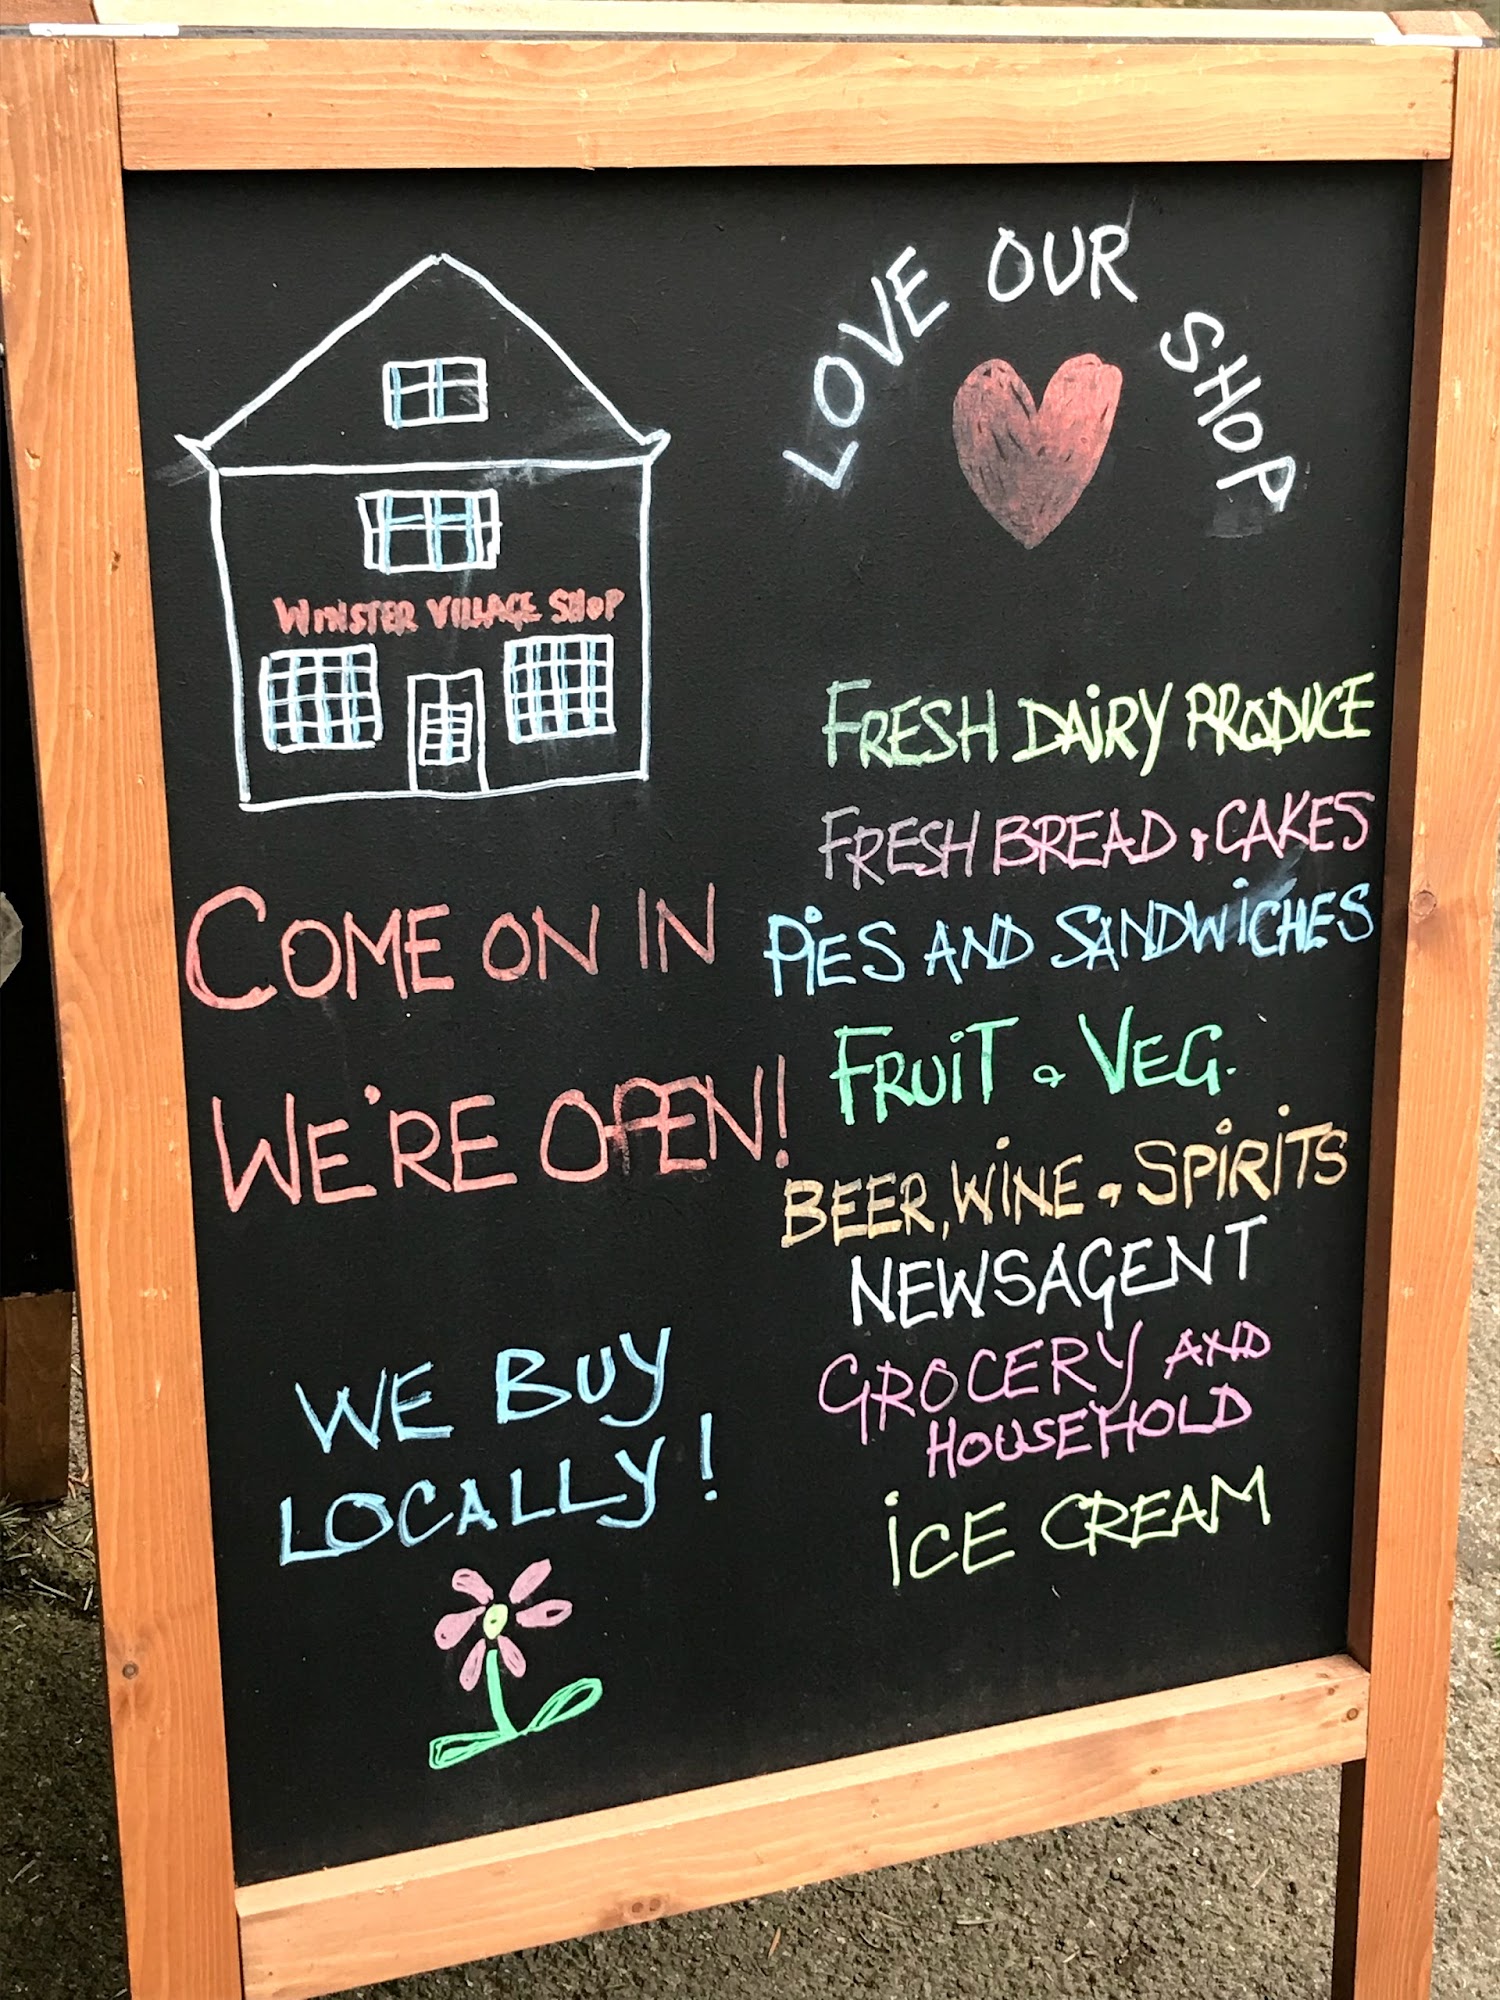 LOVE OUR SHOP
WINSTER VILLAGE SHOP
COME ON IN
WE'RE OPEN!
WE BUY
LOCALLY!
FRESH DAiRY PRODUCE
FRESH BREAD & CAKES
PiES AND SANDWiCHES
FRUiT & VEG.
BEER, WiNE & SPiRiTS
NEWSAGENT
GROCERY AND
HOUSEHOLD
iCE CREAM